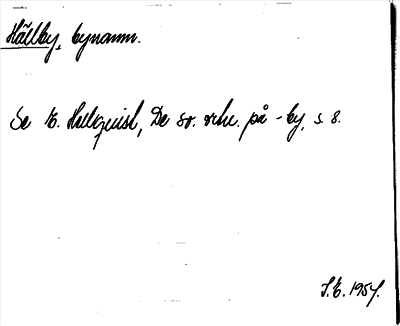 Hällby, bynamn.
Se E. Hellquist, De sv. ortn. på -by, s. 8.
I.E. 1954.